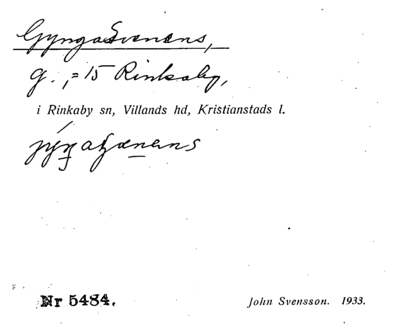 Gynga Svenens,
g. , = 15 Rinkaby,
i Rinkaby sn, Villands hd, Kristianstads l.
Nr 5484. John Svensson. 1933.